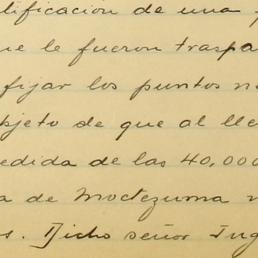 lificacion de una
ue le fueron traspa
fijar los puntos n
bjeto de que al lle
edida de las 40,000
a de Moctezuma
s. Dicho señor Ing